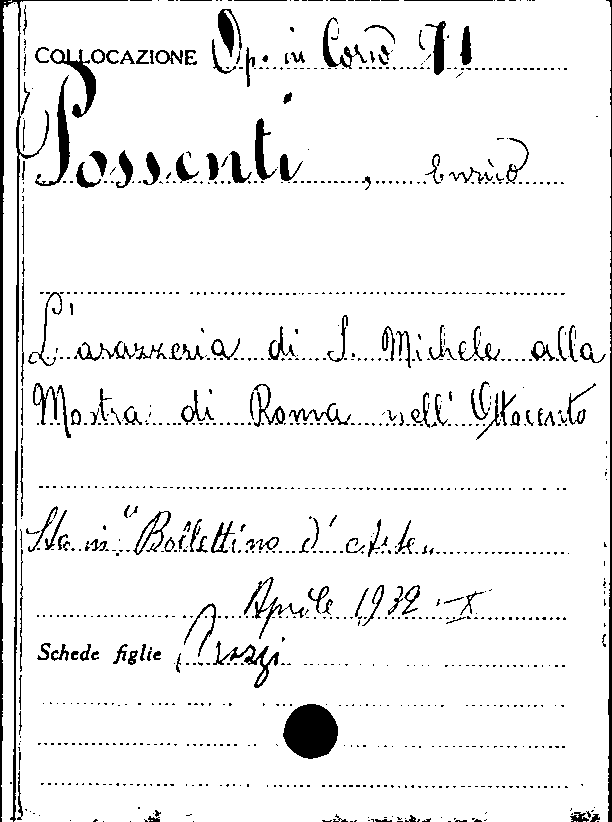 COLLOCAZIONE Op. in Corso 71
Possenti, Enrico
L'arazzeria di S. Michele alla
Mostra di Roma nell' Ottocento
Sta in "Bollettino d' Arte„
Aprile 1932 - X
Schede figlie